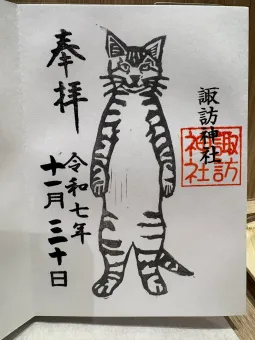 諏訪神社
諏訪
神社
奉拝
令和七年
十一月三十日